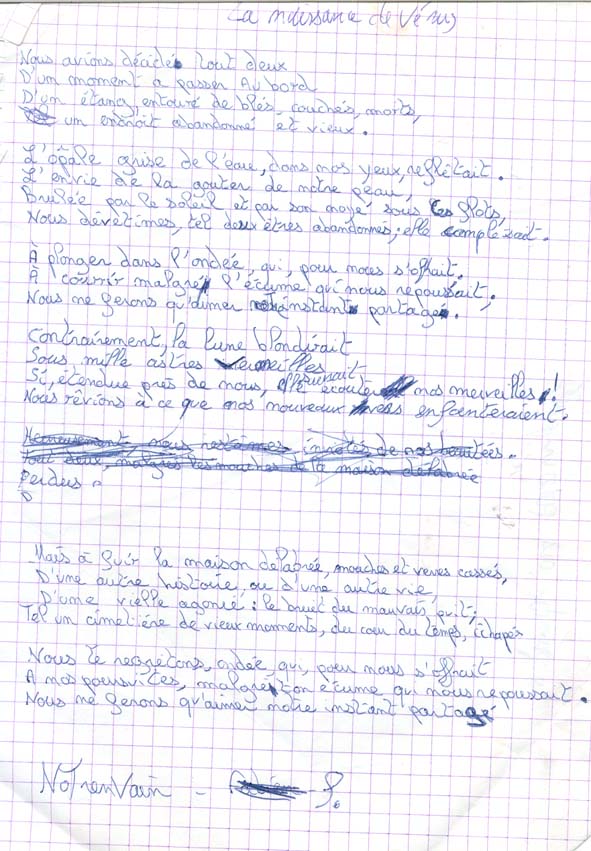 La naissance de Vénus
Nous avions décidés tout deux
D'un moment a passer Au bord
D'un étang, entouré de blés, couchés, morts,
un endroit abandonné et vieux.
L'opale grise de l'eau, dans nos yeux, reflétait.
L'envie de la gouter de notre peau,
Brulée par le soleil et par son noyé sous les flots,
Nous dévétimes, tel deux êtres abandonnes; elle complérait.
À plonger dans l'ondée, qui, pour nous s'offrait.
À courrir malgré l'écume qui nous repoussait,
Nous ne ferons qu'aimer instant partagé.
Contrairement, la lune blondirait
Sous mille astres
Si, étendue près de nous, écoute nos merveilles!
Nous rêvions à ce que nos nouveaux enfanteraient.
Heureusement nous restâmes de nos beautées.
Tout deux, malgres les mouches de la maison delabrée
Perdus
Mais à fuir la maison delabrée, mouches et reves cassés,
D'une autre histoire, ou d'une autre vie,
D'une vielle agonie: le bruit du mauvais
Tel un cimetière de vieux moments, du cœur du temps, échapés
Nous te regrétons, ondée qui, pour nous s'offrait
A nos poursuites, malgré ton écume qui nous repoussait.
Nous ne ferons qu'aimer notre instant partagé
NotrenVain -